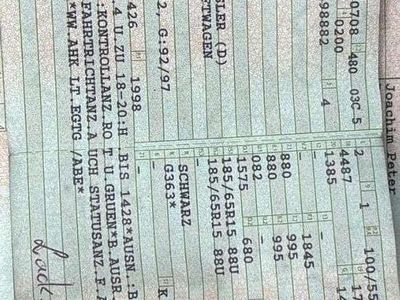 Joachim Peter
100/55
1
0708 480 03C 5 2
0200 4487
98882 4 1385
1845
880 995
880 995
082 –
1575 680
SLER (D) 185/65R15 88U
TWAGEN 185/65R15 88U
SCHWARZ
2, G:92/97 G363* K
426 1998 –
.4 U.ZU 18-20:H .BIS 1428*AUSN.:B
:KONTROLLANZ.RO T U.GRUEN*B.AUSR.
FAHRTRICHTANZ.A UCH STATUSANZ.F.A
*WW.AHK LT.EGTG /ABE*